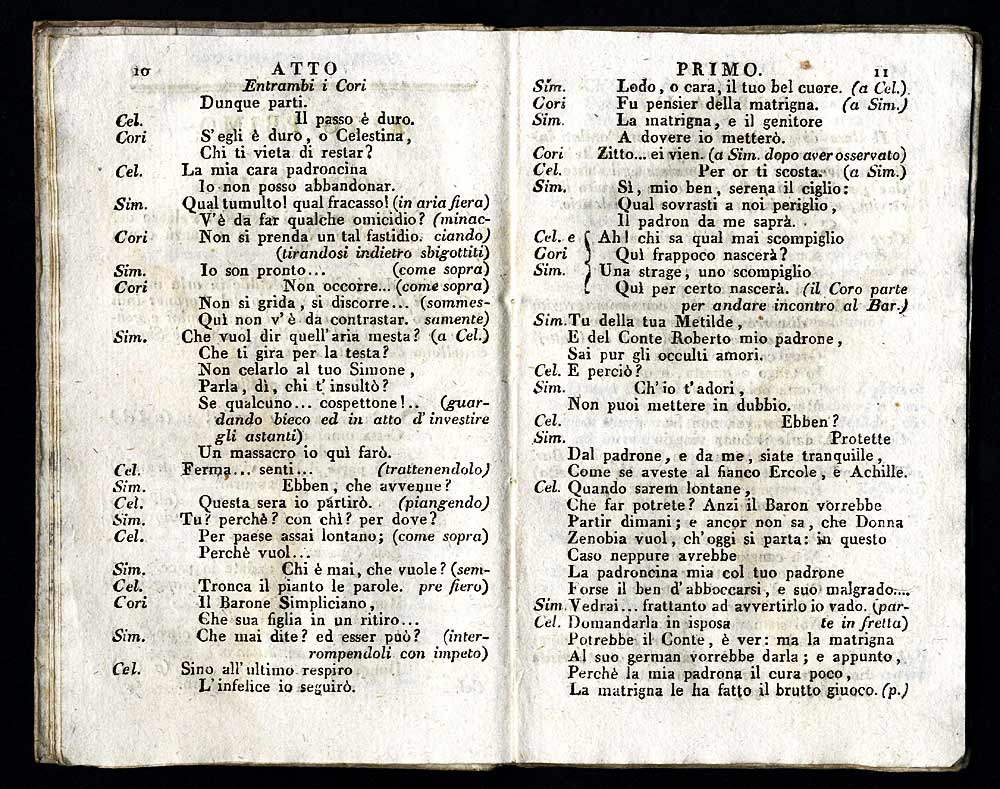 10 ATTO
Entrambi i Cori
Dunque parti.
Cel. Il passo è duro.
Cori S'egli è duro, o Celestina,
Chi ti vieta di restar?
Cel. La mia cara padroncina
Io non posso abbandonar.
Sim. Qual tumulto! qual fracasso! (in aria fiera)
V'è da far qualche omicidio? (minac-
Cori Non si prenda un tal fastidio. ciando)
(tirandosi indietro sbigottiti)
Sim. Io son pronto... (come sopra)
Cori Non occorre... (come sopra)
Non si grida, si discorre... (sommes-
Quì non v'è da contrastar. samente)
Sim. Che vuol dir quell'aria mesta? (a Cel.)
Che ti gira per la testa?
Non celarlo al tuo Simone,
Parla, dì, chi t'insultò?
Se qualcuno... cospettone!.. (guar-
dando bieco ed in atto d'investire
gli astanti)
Un massacro io quì farò.
Cel. Ferma... senti... (trattenendolo)
Sim. Ebben, che avvenne?
Cel. Questa sera io partirò. (piangendo)
Sim. Tu? perchè? con chì? per dove?
Cel. Per paese assai lontano; (come sopra)
Perchè vuol...
Sim. Chi è mai, che vuole? (sem-
Cel. Tronca il pianto le parole. pre fiero)
Cori Il Barone Simpliciano,
Che sua figlia in un ritiro...
Sim. Che mai dite? ed esser può? (inter-
rompendoli con impeto)
Cel. Sino all'ultimo respiro
L'infelice io seguirò.
PRIMO. 11
Sim. Lodo, o cara, il tuo bel cuore. (a Cel.)
Cori Fu pensier della matrigna. (a Sim.)
Sim. La matrigna, e il genitore
A dovere io metterò.
Cori Zitto... ei vien. (a Sim. dopo aver osservato)
Cel. Per or ti scosta. (a Sim.)
Sim. Sì, mio ben, serena il ciglio:
Qual sovrasti a noi periglio,
Il padron da me saprà.
Cel. e Ah! chi sa qual mai scompiglio
Cori Quì frappoco nascerà?
Sim. Una strage, uno scompiglio
Quì per certo nascerà. (il Coro parte
per andare incontro al Bar.)
Sim. Tu della tua Metilde,
E del Conte Roberto mio padrone,
Sai pur gli occulti amori.
Cel. E perciò?
Sim. Ch'io t'adori,
Non puoi mettere in dubbio.
Cel. Ebben?
Sim. Protette
Dal padrone, e da me, siate tranquille,
Come se aveste al fianco Ercole, e Achille.
Cel. Quando sarem lontane,
Che far potrete? Anzi il Baron vorrebbe
Partir dimani; e ancor non sa, che Donna
Zenobia vuol, ch'oggi si parta: in questo
Caso neppure avrebbe
La padroncina mia col tuo padrone
Forse il ben d'abboccarsi, e suo malgrado....
Sim. Vedrai... frattanto ad avvertirlo io vado. (par-
Cel. Domandarla in isposa te in fretta)
Potrebbe il Conte, è ver: ma la matrigna
Al suo german vorrebbe darla; e appunto,
Perchè la mia padrona il cura poco,
La matrigna le ha fatto il brutto giuoco. (p.)